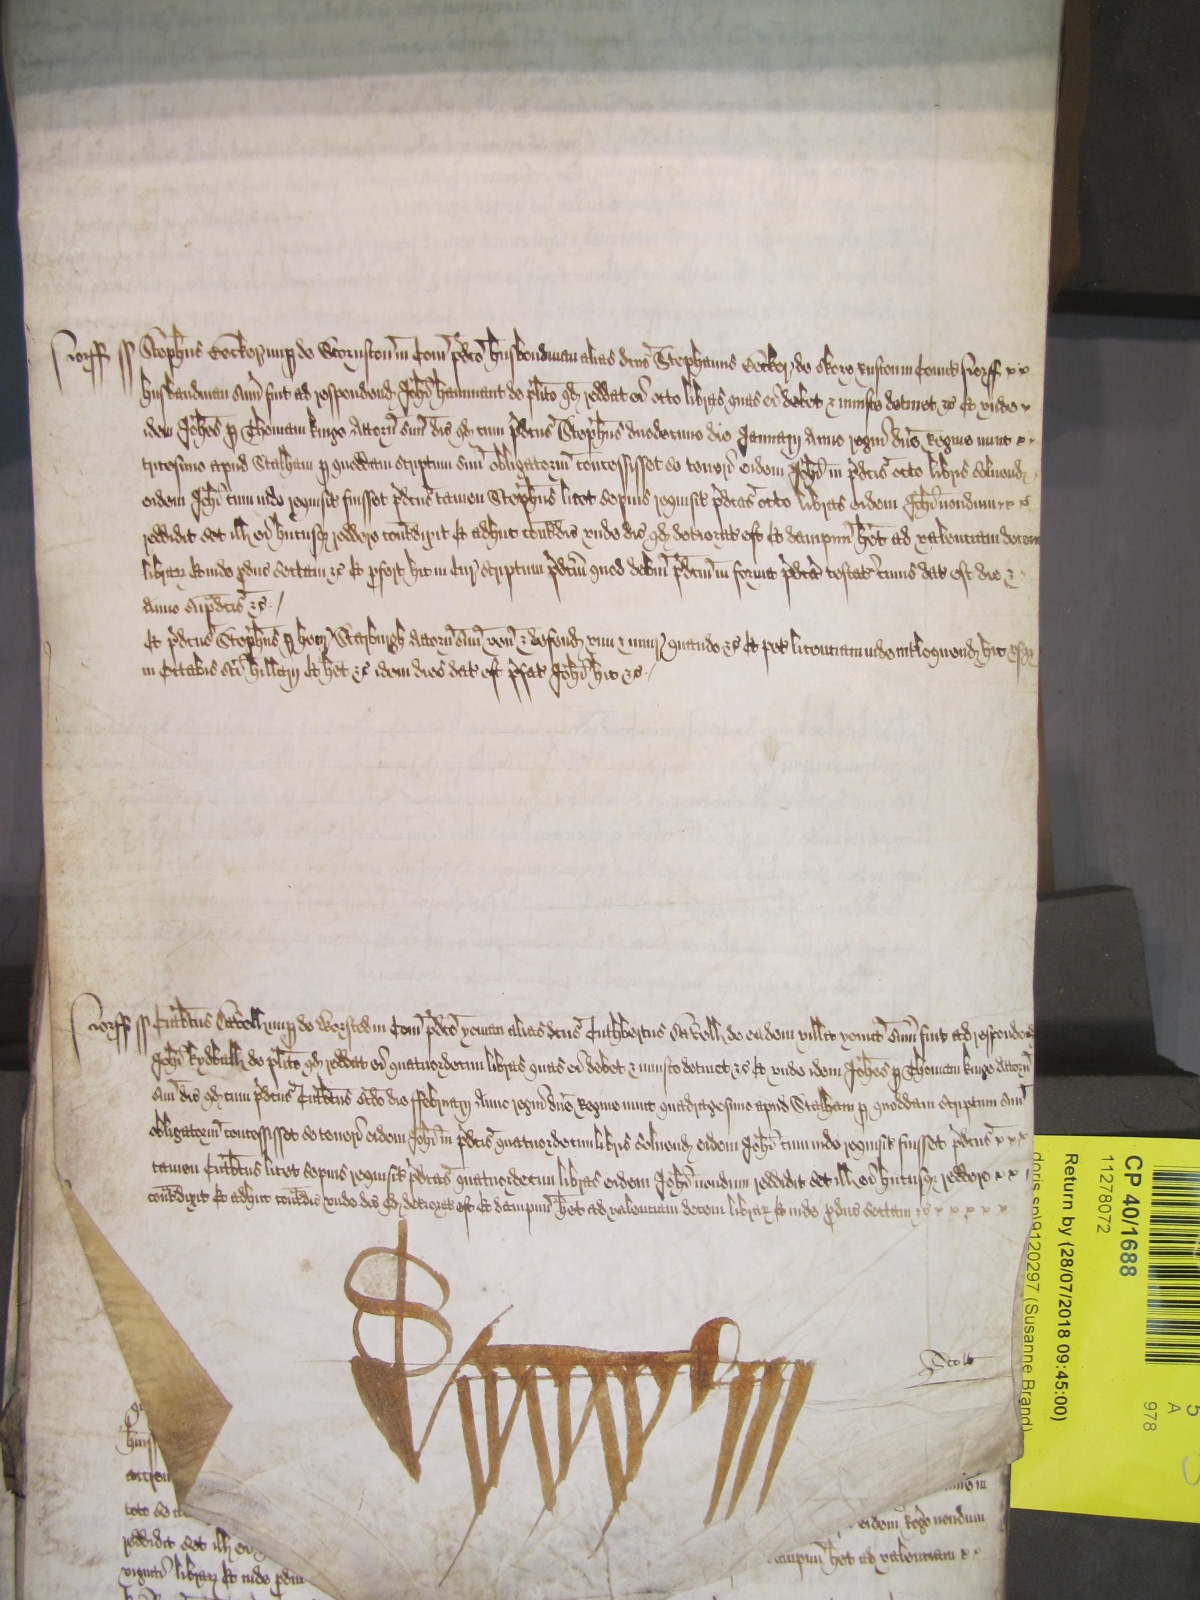 Norff ss Stephus Cocker nup de Worston in Com pdco husbondman alias dcus Stephanus Cocker de Skoro Ruston in Comit Norff x x
husbandman sum fuit ad respondend Johi hammant de plito qd reddat ei octo libras quas ei debet & iniuste detinet &c Et unde
idem Johes p Thomam kinge Attorn suu dic qd cum pdcus Stephus duodecimo die Januarij Anno regni dne Regine nunc
tricesimo apud Stalham p quoddam scriptum suu obligatoriu concessisset se teneri eidem Johi in pdcis octo libris solvend
eidem Johi cum inde requisit fuisset pdcus tamen Stephus licet sepius requisit pdcas octo libras eidem Johi nondum
reddidit set ill ei hucusq reddere contdixit Et adhuc contdic unde dic qd deteriorat est Et dampnu het ad valenciam decem
librar Et inde pduc sectam &c Et pfert hic in Cur scriptum pdcm quod debm pdcm in forma pdca testat cuius dat est die &
Anno supdcis &c
Et pdcus Stephus p hen Scarburgh Attorn suu ven & defend vim & iniur quando &c Et pet licenciam inde interloquend hic usq
in Octabis sci hillarij Et het &c idem dies dat est pfat Johi hic &c
Norff ss Cuthbtus nup de Worsted in Com pdco yoman alias dcus Cuthbertus de eadem villa sum fuit ad respondend
Johi kydball de plito qd reddat ei quatuordecim libras quas ei debet & iniuste detinet &c Et unde idem Johes p Thomam kinge Attorn
suu dic qd cum pdcus Cuthbtus scdo die ffebruarij Anno regni dne Regine nunc quadragesimo apud Stalham p quoddam scriptum suu
obligatoriu concessisset se teneri eidem Johi in pdcis quatuordecim libris solvend eidem Johi cum inde requisit fuisset pdcus x x x
tamen Cuthbtus licet sepius requisit pdcas quatuordecim libras eidem Johi nondum reddidit set ill ei hucusq reddere x x
contdixit Et adhuc contdic unde dic qd deteriorat est Et dampnu het ad valenciam decem librar Et inde pduc sectam &c x x x x x
Scott
eidem nondum
reddidit set ill ei
dampnu het ad valenciam x x
librar Et inde pduc
CP 40/1688
11278072
Return by (28/07/2018 09:45:00)
doris sp\9120297 (Susanne Brand)
5
A
978